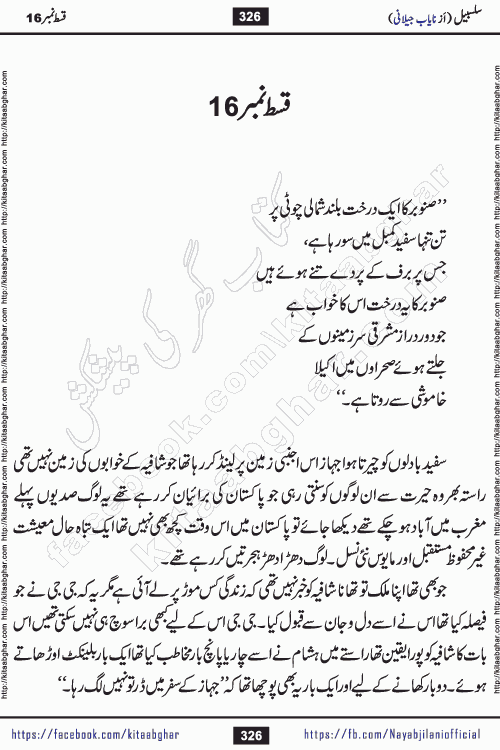 سلسبیل (از نایاب جیلانی)
326
قسط نمبر 16
قسط نمبر 16
’’صنوبر کا ایک درخت بلند شمالی چوٹی پر
تن تنہا سفید کمبل میں سو رہا ہے،
جس پر برف کے پردے تنے ہوئے ہیں
صنوبر کا یہ درخت اس کا خواب ہے
جو دور دراز مشرقی سرزمینوں کے
جلتے ہوئے صحراوں میں اکیلا
خاموشی سے روتا ہے۔‘‘
سفید بادلوں کو چیرتا ہوا جہاز اس اجنبی زمین پر لینڈ کر رہا تھا جو شافیہ کے خوابوں کی زمین نہیں تھی
راستہ بھر وہ حیرت سے ان لوگوں کو سنتی رہی جو پاکستان کی برائیاں کر رہے تھے یہ لوگ صدیوں پہلے
مغرب میں آباد ہو چکے تھے دیکھا جائے تو پاکستان میں اس وقت کچھ بھی نہیں تھا ایک تباہ حال معیشت
غیر محفوظ مستقبل اور مایوس نئی نسل۔ لوگ دھڑا دھڑ ہجرتیں کر رہے تھے۔
جو بھی تھا اپنا ملک تو تھا نا شافیہ کو خبر نہیں تھی کہ زندگی کس موڑ پر لے آئی ہے مگر یہ کہ جی جی نے جو
فیصلہ کیا تھا اس نے اسے دل و جان سے قبول کیا۔ جی جی اس کے لیے بھی برا سوچ ہی نہیں سکتی تھیں اس
بات کا شافیہ کو پورا یقین تھا راستے میں ہشام نے اسے چار یا پانچ بار مخاطب کیا تھا ایک بار بلینکٹ اوڑھاتے
ہوئے۔ دو بار کھانے کے لیے اور ایک بار یہ بھی پوچھا تھا کہ ’’جہاز کے سفر میں ڈر تو نہیں لگ رہا۔‘‘
https://facebook.com/kitaabghar
326
https://fb.com/Nayabjilaniofficial
http://kitaabghar.com http://kitaabghar.com http://kitaabghar.com http://kitaabghar.com http://kitaabghar.com http://kitaabghar.com
کتاب گھر کی پیشکش
facebook.com/kitaabghar
kitaabghar.com